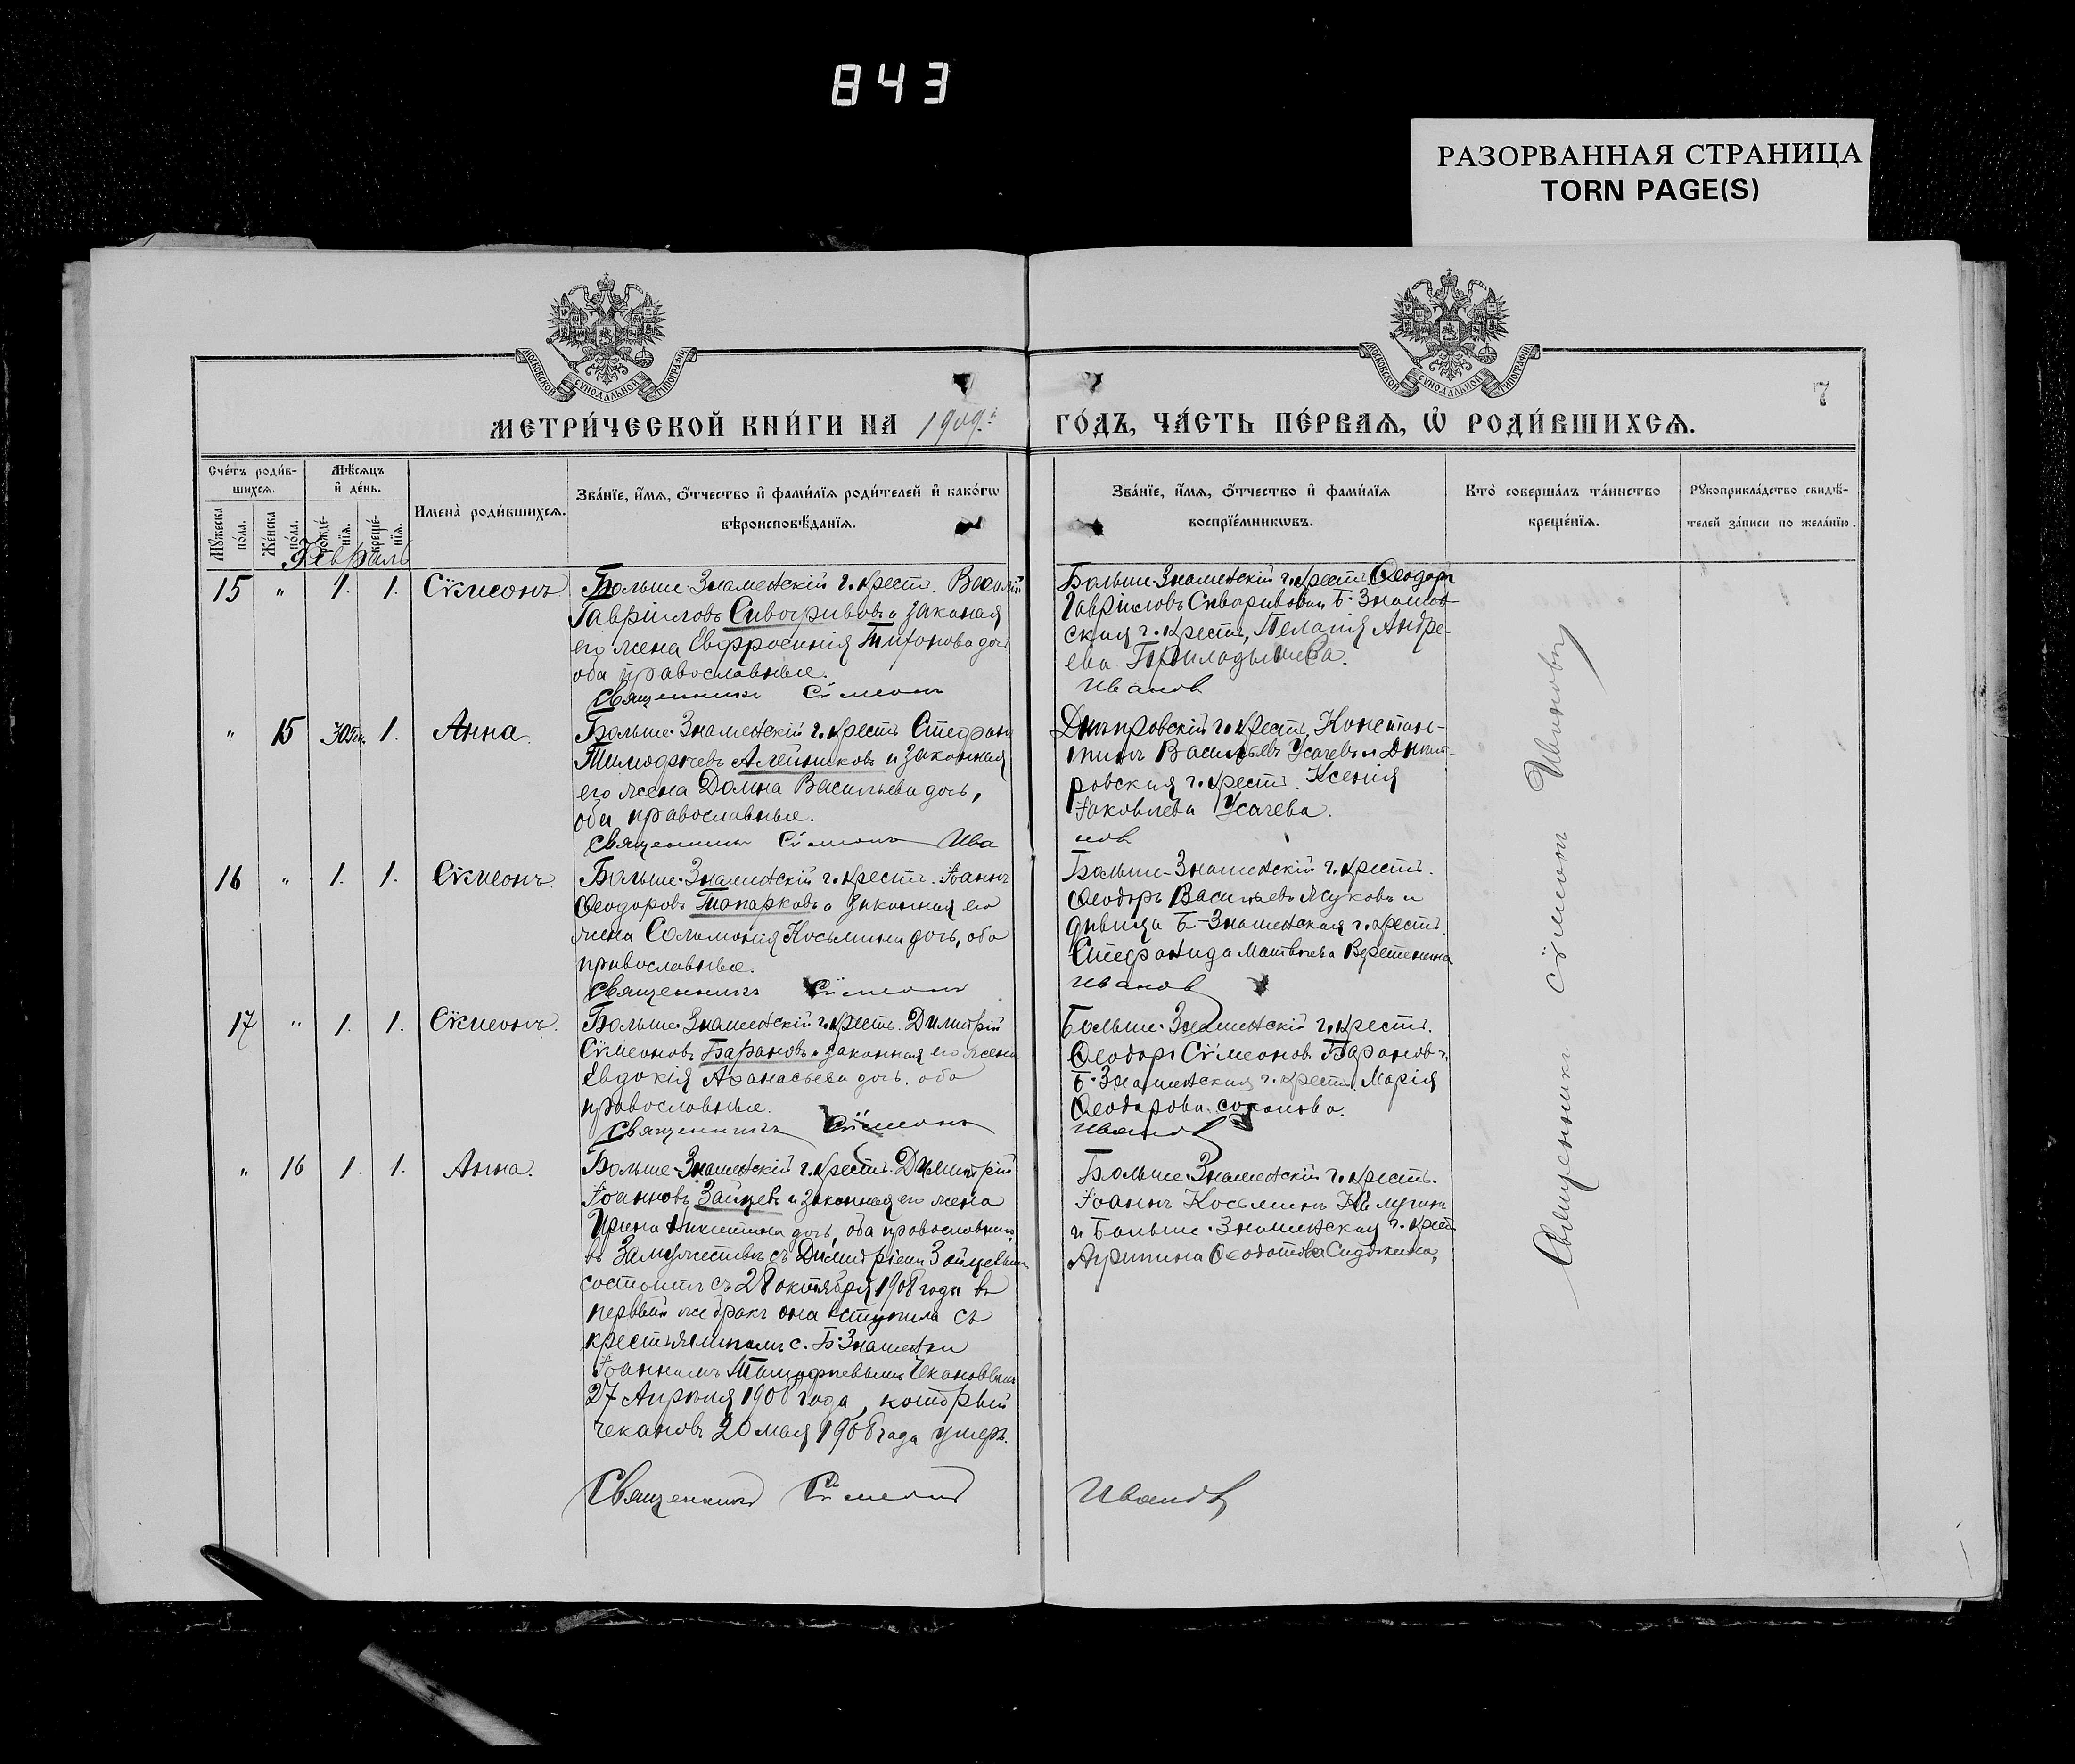 843
РАЗОРВАННАЯ СТРАНИЦА
TORN PAGE(S)
МОСКОВСКОЙ СѴНОДАЛЬНОЙ ТИПОГРАФІИ
МОСКОВСКОЙ СѴНОДАЛЬНОЙ ТИПОГРАФІИ
7
МЕТРИ́ЧЕСКОЙ КНИ́ГИ НА 1909.
ГО́ДЪ, ЧА́СТЬ ПЕ́РВАѦ, Ѡ҆ РОДИ́ВШИХСѦ.
Сче́тъ роди́вшихсѧ.
Мꙋ́жеска по́ла.
Же́нска по́ла.
Мѣ́сѧцъ и҆ де́нь.
рожде́нїѧ.
креще́нїѧ.
Имена̀ роди́вшихсѧ.
Зва́нїе, и҆́мѧ, ѻ҆́тчество и҆ фами́лїѧ роди́телей и҆ како́гѡ
вѣроисповѣ́данїѧ.
Зва́нїе, и҆́мѧ, ѻ҆́тчество и҆ фами́лїѧ
воспрїе́мникѡвъ.
Кто̀ соверша́лъ та́инство
креще́нїѧ.
Рꙋкоприкла́дство свидѣ́-
телей за́писи по жела́нїю.
Февраль
15 " 1. 1. Сѵмеонъ
Больше-Знаменскій г. крест. Василій
Гавріиловъ Сивогривовъ и законная
его жена Евфросинія Тихонова дочь
оба православные.
Священникъ Сѵмеонъ
Больше-Знаменскій г. крест. Ѳеодоръ
Гавріиловъ Сивогривовъ и Б. Знамен-
ская г. крест., Пелагія Андре-
ева
Иванов
" 15 30 Ян. 1. Анна
Больше-Знаменскій г. крест. Стефанъ
Тимофѣевъ Алейниковъ и законная
его жена Домна Васильева дочь,
оба православные.
Священникъ Сѵмеонъ Ива
Днѣпровскій г. крест. Констан-
тинъ Васильевъ Усачевъ и Днѣп-
ровская г. крест. Ксенія
Іаковлева Усачева.
нов
16 " 1. 1. Сѵмеонъ.
Больше-Знаменскій г. крест. Іоаннъ
Ѳеодоровъ Топарковъ и законная его
жена Соломонія Косьмина дочь, оба
православные.
Священникъ Сѵмеонъ
Больше-Знаменскій г. крест.
Ѳеодоръ Васильевъ Жуковъ и
дѣвица Б-Знаменская г. крест.
Стефанида Матвѣева Веретенина
Иванов
17 " 1. 1. Сѵмеонъ.
Больше-Знаменскій г. крест. Димитрій
Сѵмеоновъ Барановъ и законная его жена
Евдокія Аѳанасьева дочь. оба
православные.
Священникъ Сѵмеонъ
Больше-Знаменскій г. крест.
Ѳеодоръ Сѵмеоновъ Барановъ и
Б-Знаменская г. крест. Марія
Ѳеодорова
Иванов
" 16 1. 1. Анна.
Больше-Знаменскій г. крест. Димитрій
Іоанновъ Зайцевъ и законная его жена
Ирина Никитина дочь, оба православные,
въ замужествѣ съ Димитріемъ Зайцевымъ
состоитъ съ 28 октября 1908 года въ
первый же бракъ она вступила съ
крестьяниномъ с. Б-Знаменки
Іоанномъ Тимофѣевымъ Чекановымъ
27 Апрѣля 1908 года, который
Чекановъ 20 мая 1908 года умеръ.
Священникъ Сѵмеонъ
Больше-Знаменскій г. крест.
Іоаннъ Косьминъ
и Больше-Знаменская г. крест.
Агрипина Ѳеодотова
Иванов
Священникъ Сѵмеонъ Ивановъ